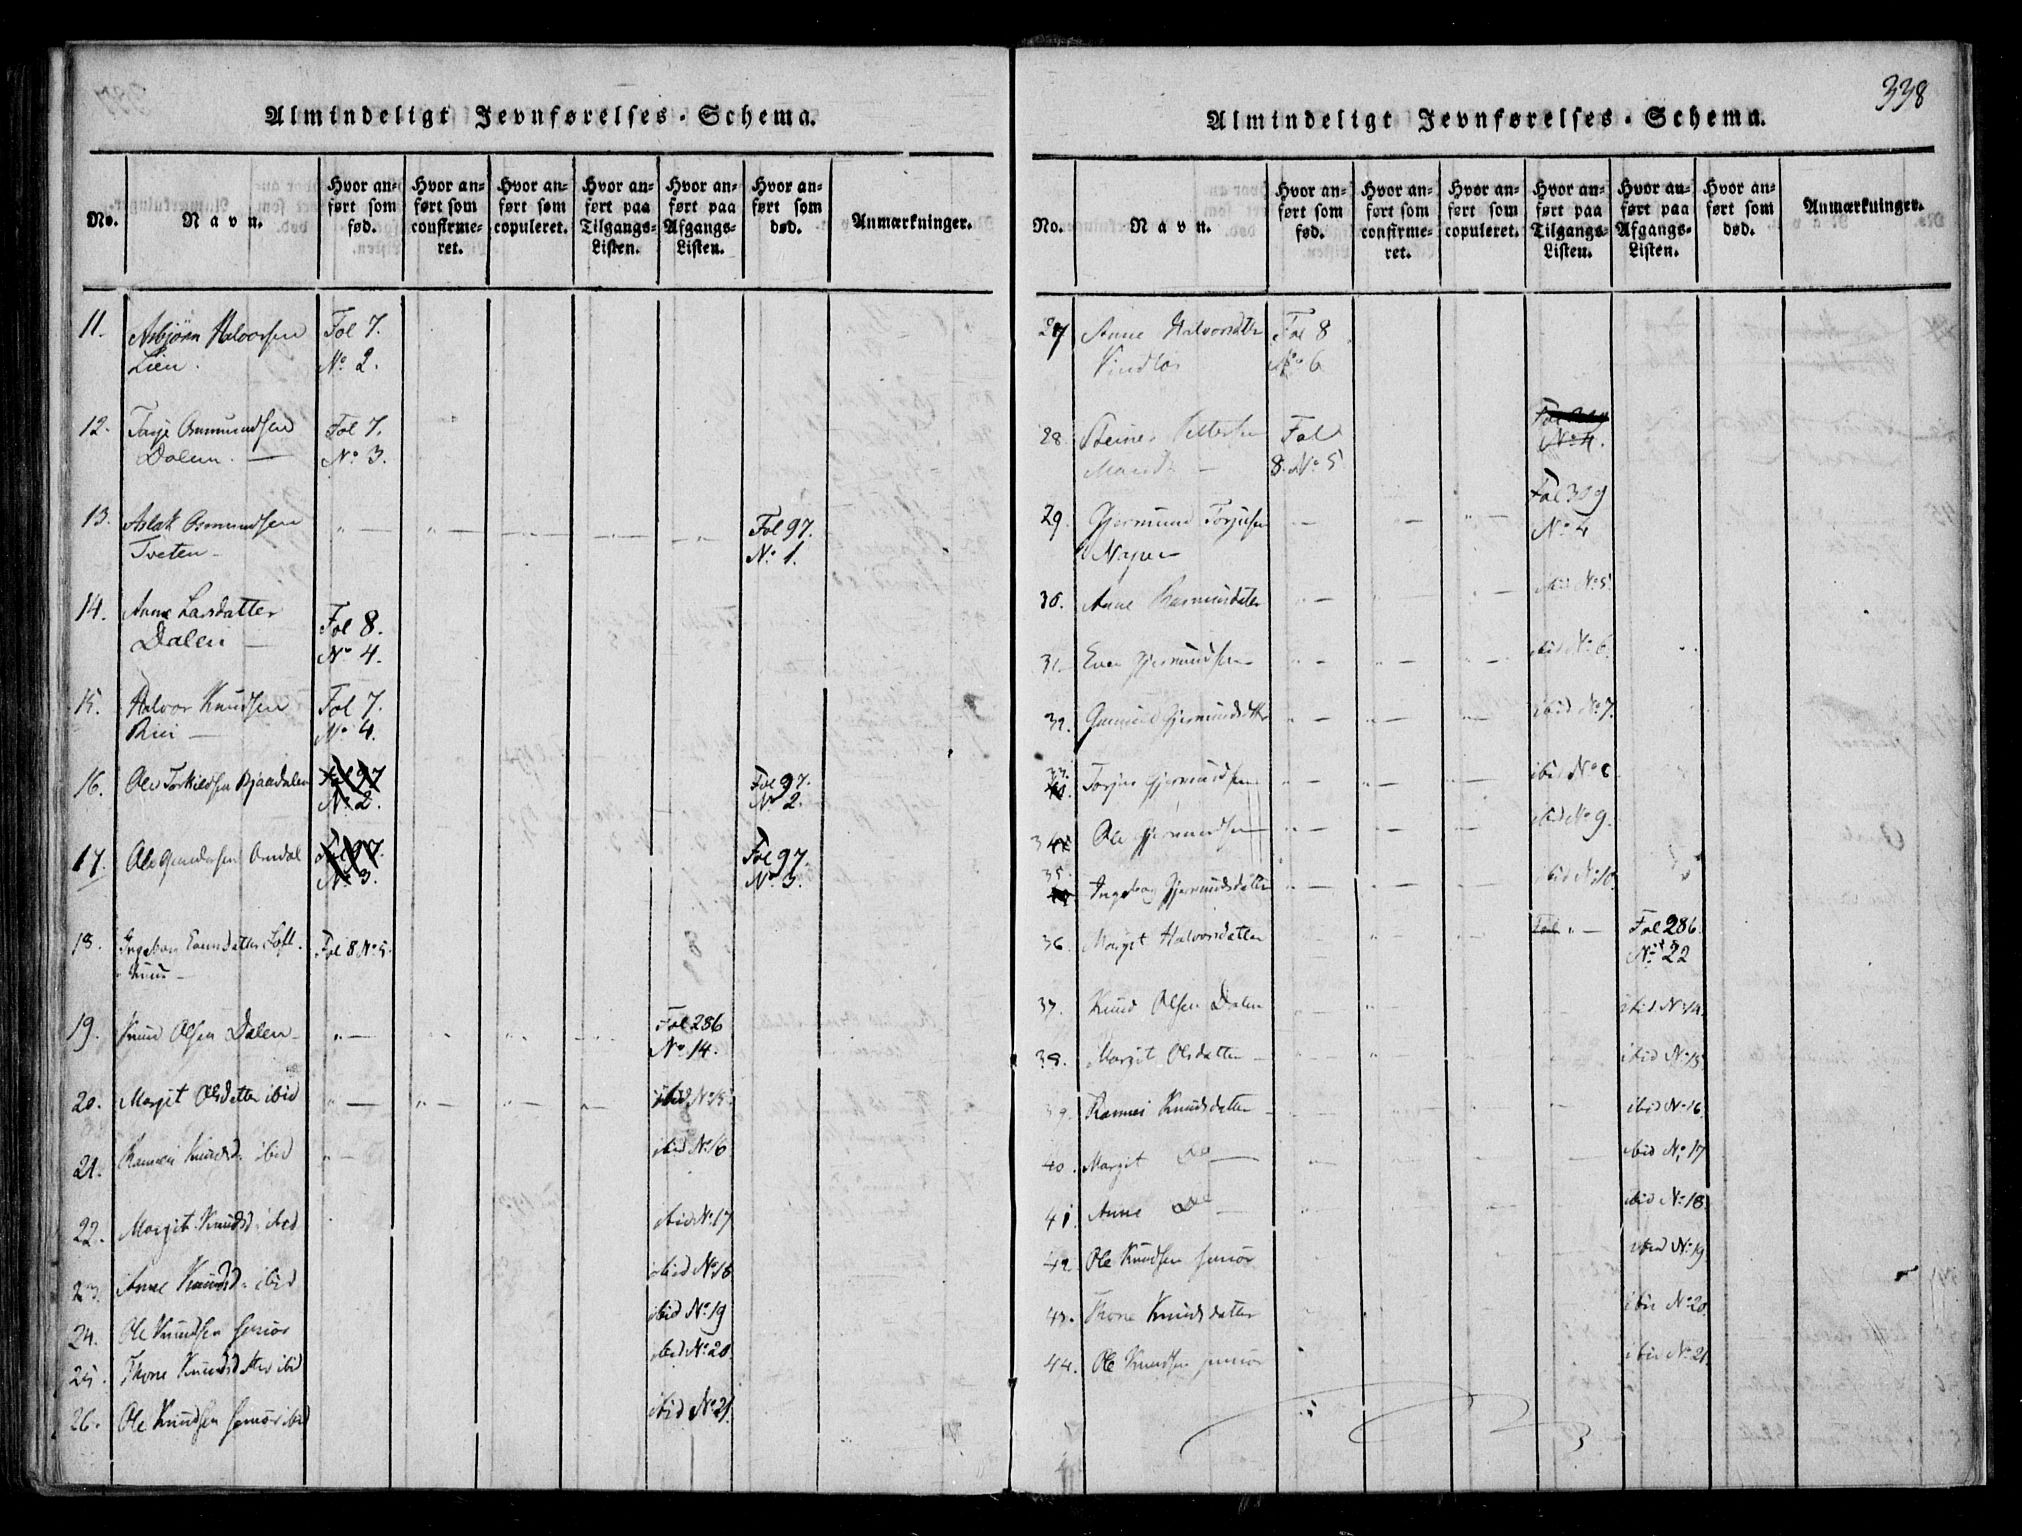 Almindeligt Jevnførelses-Schema.
No.
Navn.
Hvor an-
ført som
fød.
Hvor an-
ført som
confirme-
ret.
Hvor an-
ført som
copuleret.
Hvor an-
ført paa
Tilgangs-
Listen.
Hvor an-
ført paa
Afgangs-
Listen.
Hvor an-
ført som
død.
Anmærkninger.
11. Asbjørn Halvorsen Fol 7.
Lien. No 2.
12. Tarje Osmundsen Fol 7.
Dalen. — No 3.
13. Aslak Osmundsen " — " — — — Fol 97.
Tveten — No 1.
14. Anne Larsdatter Fol 8.
Dalen — No 4.
15. Halvor Knudsen Fol 7.
No 4.
16. Ole Torkildsen Fol 97 Fol 97.
No 2. No 2.
17. Ole Fol 97. Fol 97.
No 3. No 3.
18. Ingebor Fol 8 No 5.
19. Knud Olsen Dalen — " — Fol 286
No 14.
20. Margit Olsdatter ibid " — " — " — " — ibid No 15
21. Knudsd. ibid " — ibid No 16
22. Margit Knudsd. ibid ibid No 17
23. Anne Knudsd. ibid ibid No 18
24. Ole Knudsen senior ibid No 19
25. Thone ibid ibid No 20.
26. Ole Knudsen ibid ibid No 21.
338
Almindeligt Jevnførelses-Schema.
No.
Navn.
Hvor an-
ført som
fød.
Hvor an-
ført som
confirme-
ret.
Hvor an-
ført som
copuleret.
Hvor an-
ført paa
Tilgangs-
Listen.
Hvor an-
ført paa
Afgangs-
Listen.
Hvor an-
ført som
død.
Anmærkninger.
27 Anne Halvorsdatter Fol 8
No 6
28. Fol
No 4.
8. No 5
29. Gjermund Torjusen " — " — " — Fol 309
No 4
30. Anne " — " — " — ibid No 5.
31. Even Gjermundsen " — " — " — ibid No 6.
32. Gjermundsdatter " — " — " — ibid No 7.
33. Torjus Gjermundsen " — " — " — ibid No 8
34 Ole Gjermundsen " — " — " — ibid No 9.
35. Ingebor Gjermundsdatter " — " — " — ibid No 10.
36. Margit Halvorsdatter " — " — Fol " — Fol 286.
No 22
37. Knud Olsen Dalen ibid No 14.
38. Margit Olsdatter — ibid No 15
39. Knudsdatter ibid No 16
40. Margit Do — ibid No 17
41. Anne Do — ibid No 18.
42 Ole Knudsen senior ibid No 19
43. Thone Knudsdatter ibid No 20
44. Ole Knudsen junior ibid No 21.